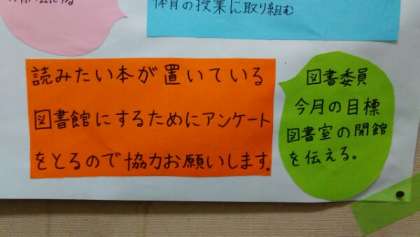 体育の授業に取り組む
読みたい本が置いている
図書館にするためにアンケート
をとるので協力お願いします。
図書委員
今月の目標
図書室の開館
を伝える。